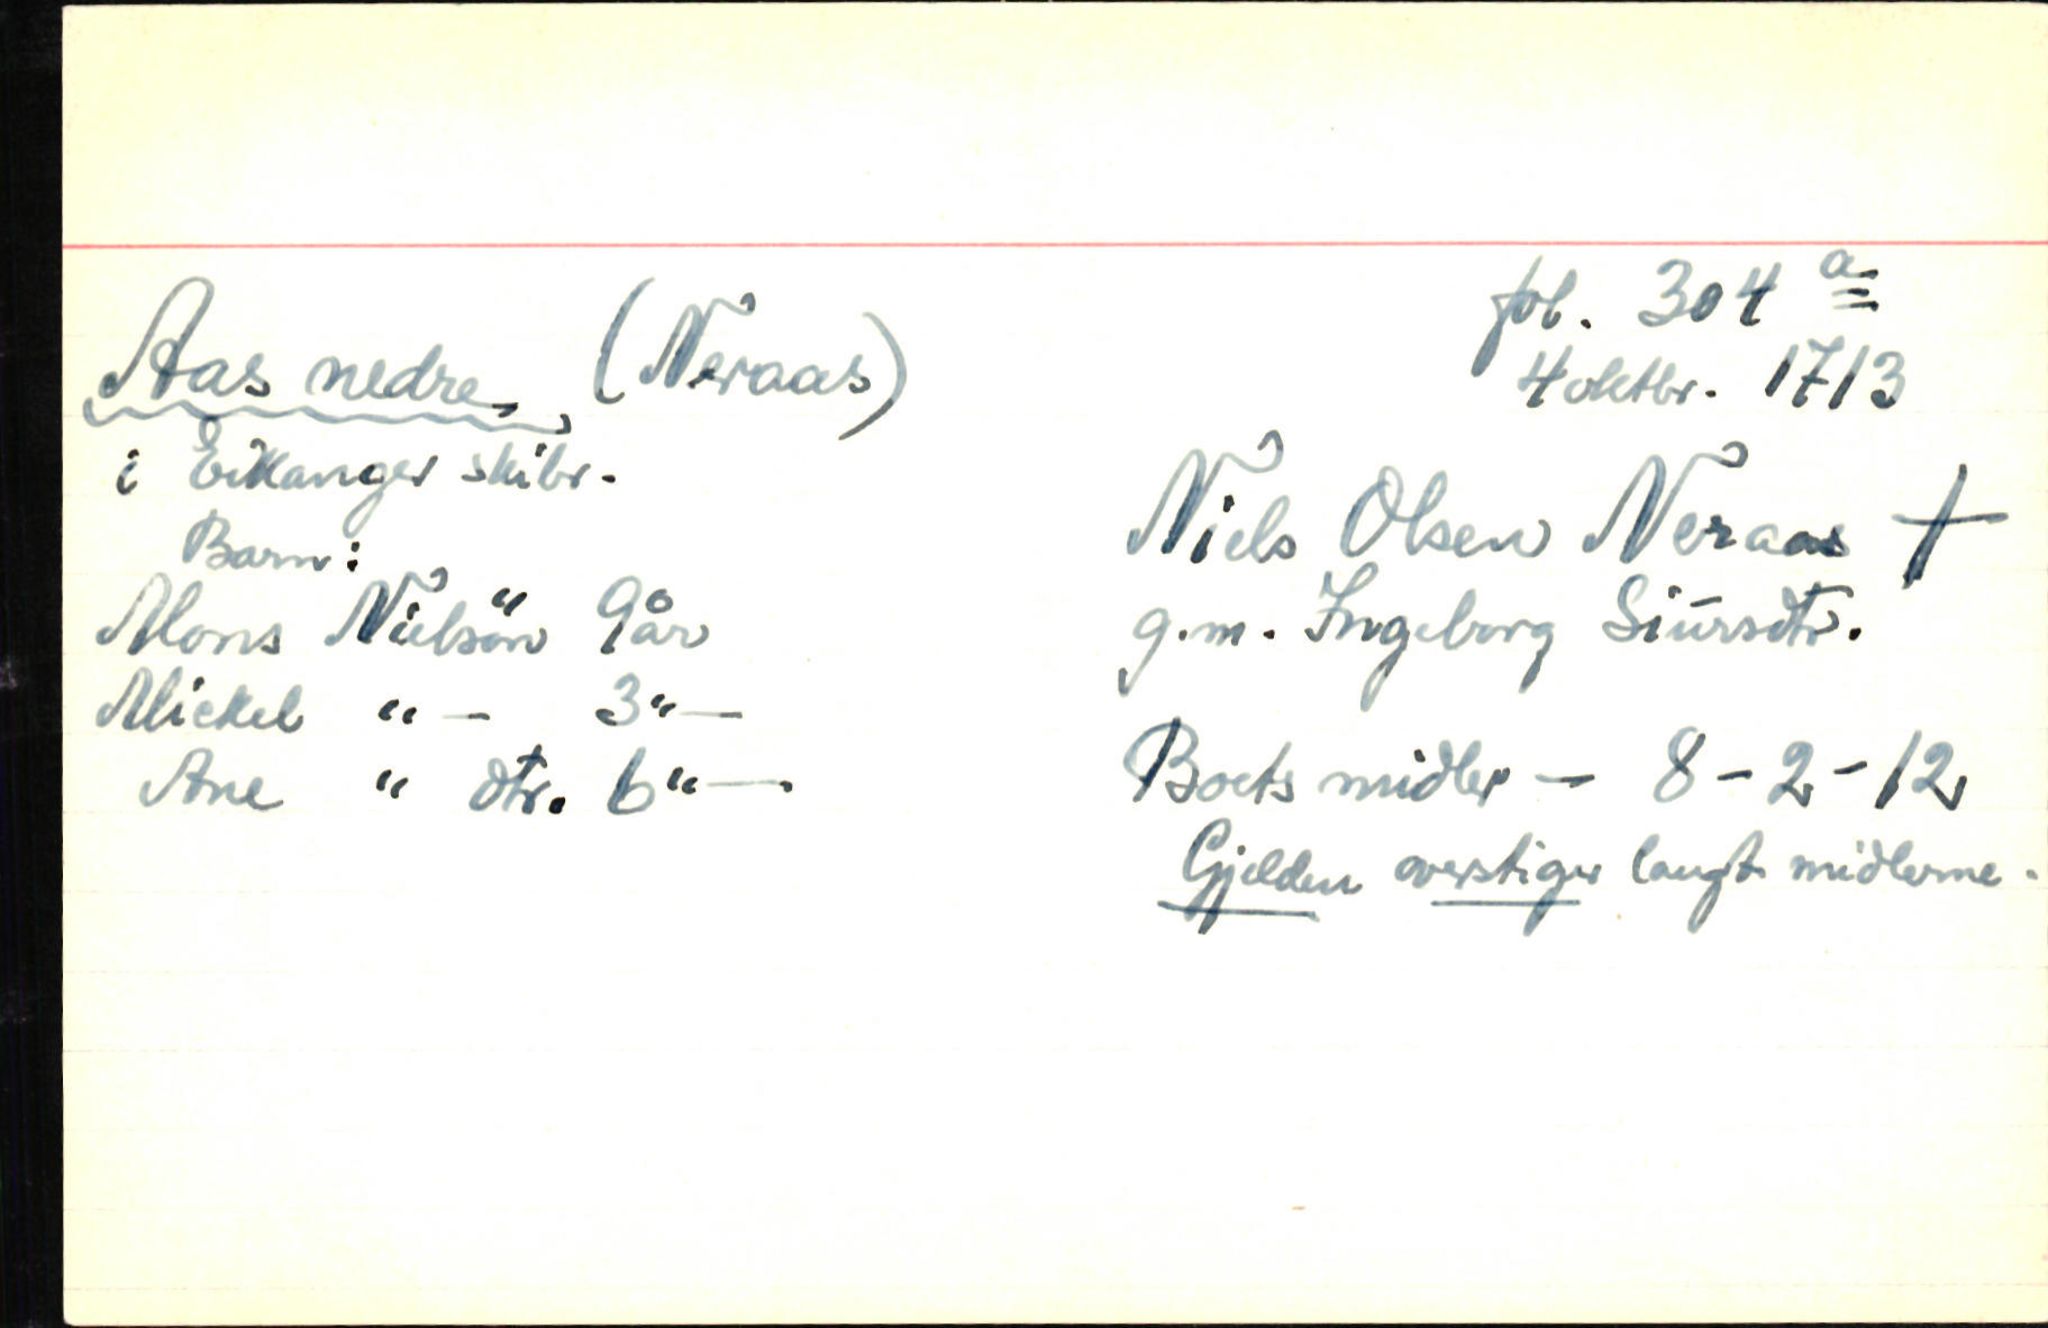 Aas nedre, (Neraas)
i Eikanger skibr.
Barn:
Mons Nielsön 9 år
Mickel "- 3"-
Ane " dtr. 6"-.
fol. 304 a
4 oktbr. 1713
Niels Olsen Neraas †
g.m. Ingeborg Siursdtr.
Boets midler - 8-2-12
Gjelden overstiger langt midlerne.